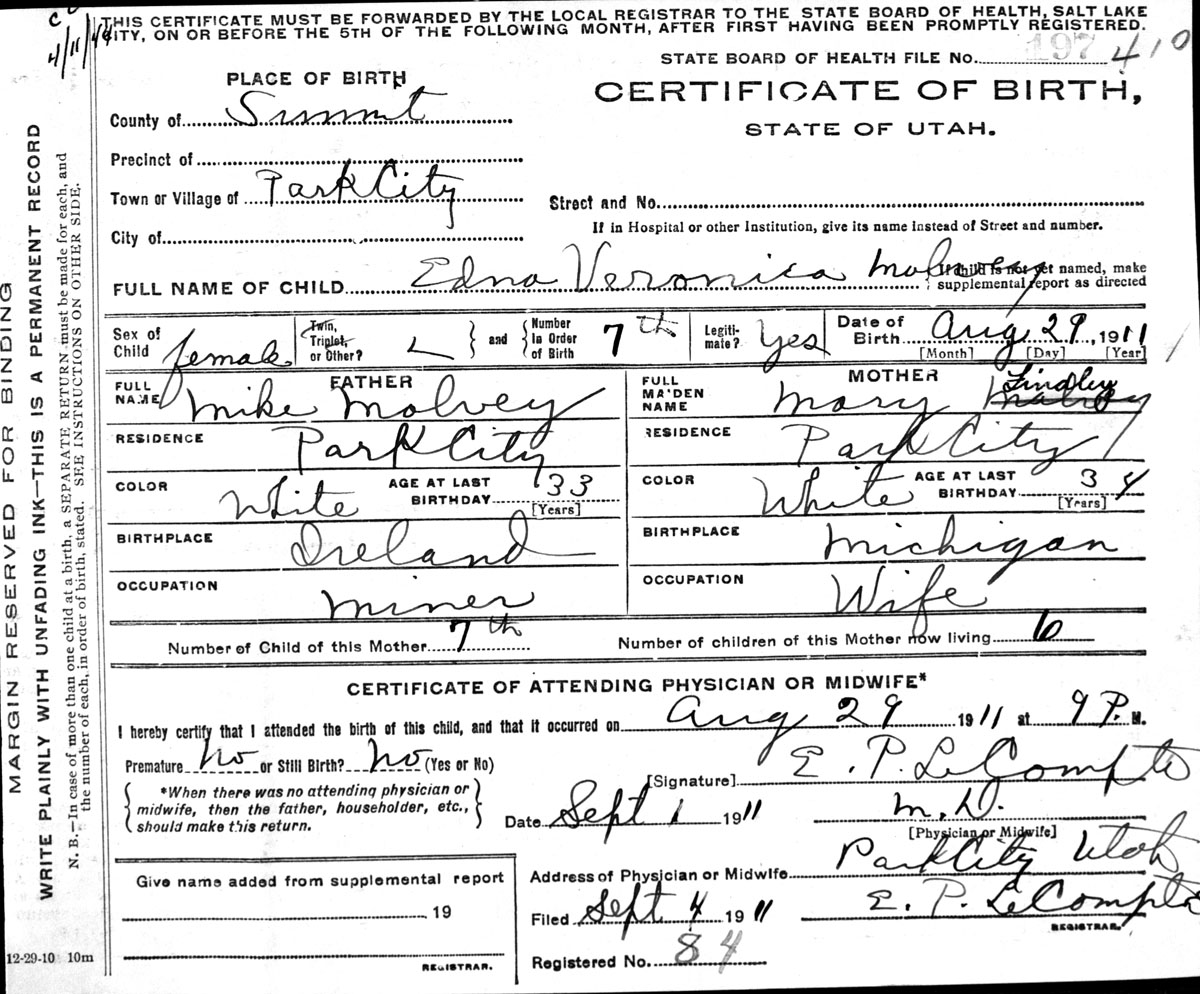 C
4/11/44
THIS CERTIFICATE MUST BE FORWARDED BY THE LOCAL REGISTRAR TO THE STATE BOARD OF HEALTH, SALT LAKE
CITY, ON OR BEFORE THE 5TH OF THE FOLLOWING MONTH, AFTER FIRST HAVING BEEN PROMPTLY REGISTERED.
STATE BOARD OF HEALTH FILE No. 197 410
PLACE OF BIRTH
CERTIFICATE OF BIRTH,
STATE OF UTAH.
County of Summit
Precinct of
Town or Village of Park City
Street and No.
City of
If in Hospital or other Institution, give its name instead of Street and number.
FULL NAME OF CHILD Edna Veronica Malvey
If child is not yet named, make
supplemental report as directed
Sex of Child female
Twin, Triplet, or Other?
and
Number in Order of Birth 7th
Legiti-mate? Yes
Date of Birth Aug 29, 1911
[Month] [Day] [Year]
FATHER
FULL NAME Mike Molvey
RESIDENCE Park City
COLOR White
AGE AT LAST BIRTHDAY 33
[Years]
BIRTHPLACE Ireland
OCCUPATION Miner
MOTHER
FULL MAIDEN NAME Mary Lindley
RESIDENCE Park City
COLOR White
AGE AT LAST BIRTHDAY 34
[Years]
BIRTHPLACE Michigan
OCCUPATION Wife
Number of Child of this Mother 7th
Number of children of this Mother now living 6
CERTIFICATE OF ATTENDING PHYSICIAN OR MIDWIFE*
I hereby certify that I attended the birth of this child, and that it occurred on Aug 29 1911 at 9 P. M.
Premature No or Still Birth? No (Yes or No)
[Signature] E. P. LeCompte
*When there was no attending physician or
midwife, then the father, householder, etc.,
should make this return.
Date Sept 1 1911
M.D.
[Physician or Midwife]
Address of Physician or Midwife Park City Utah
Give name added from supplemental report
19
REGISTRAR.
Filed Sept 4 1911
E. P. LeCompte
REGISTRAR.
Registered No. 84
12-29-10 10m
MARGIN RESERVED FOR BINDING
WRITE PLAINLY WITH UNFADING INK—THIS IS A PERMANENT RECORD
N. B.—In case of more than one child at a birth, a SEPARATE RETURN must be made for each, and
the number of each, in order of birth, stated. SEE INSTRUCTIONS ON OTHER SIDE.